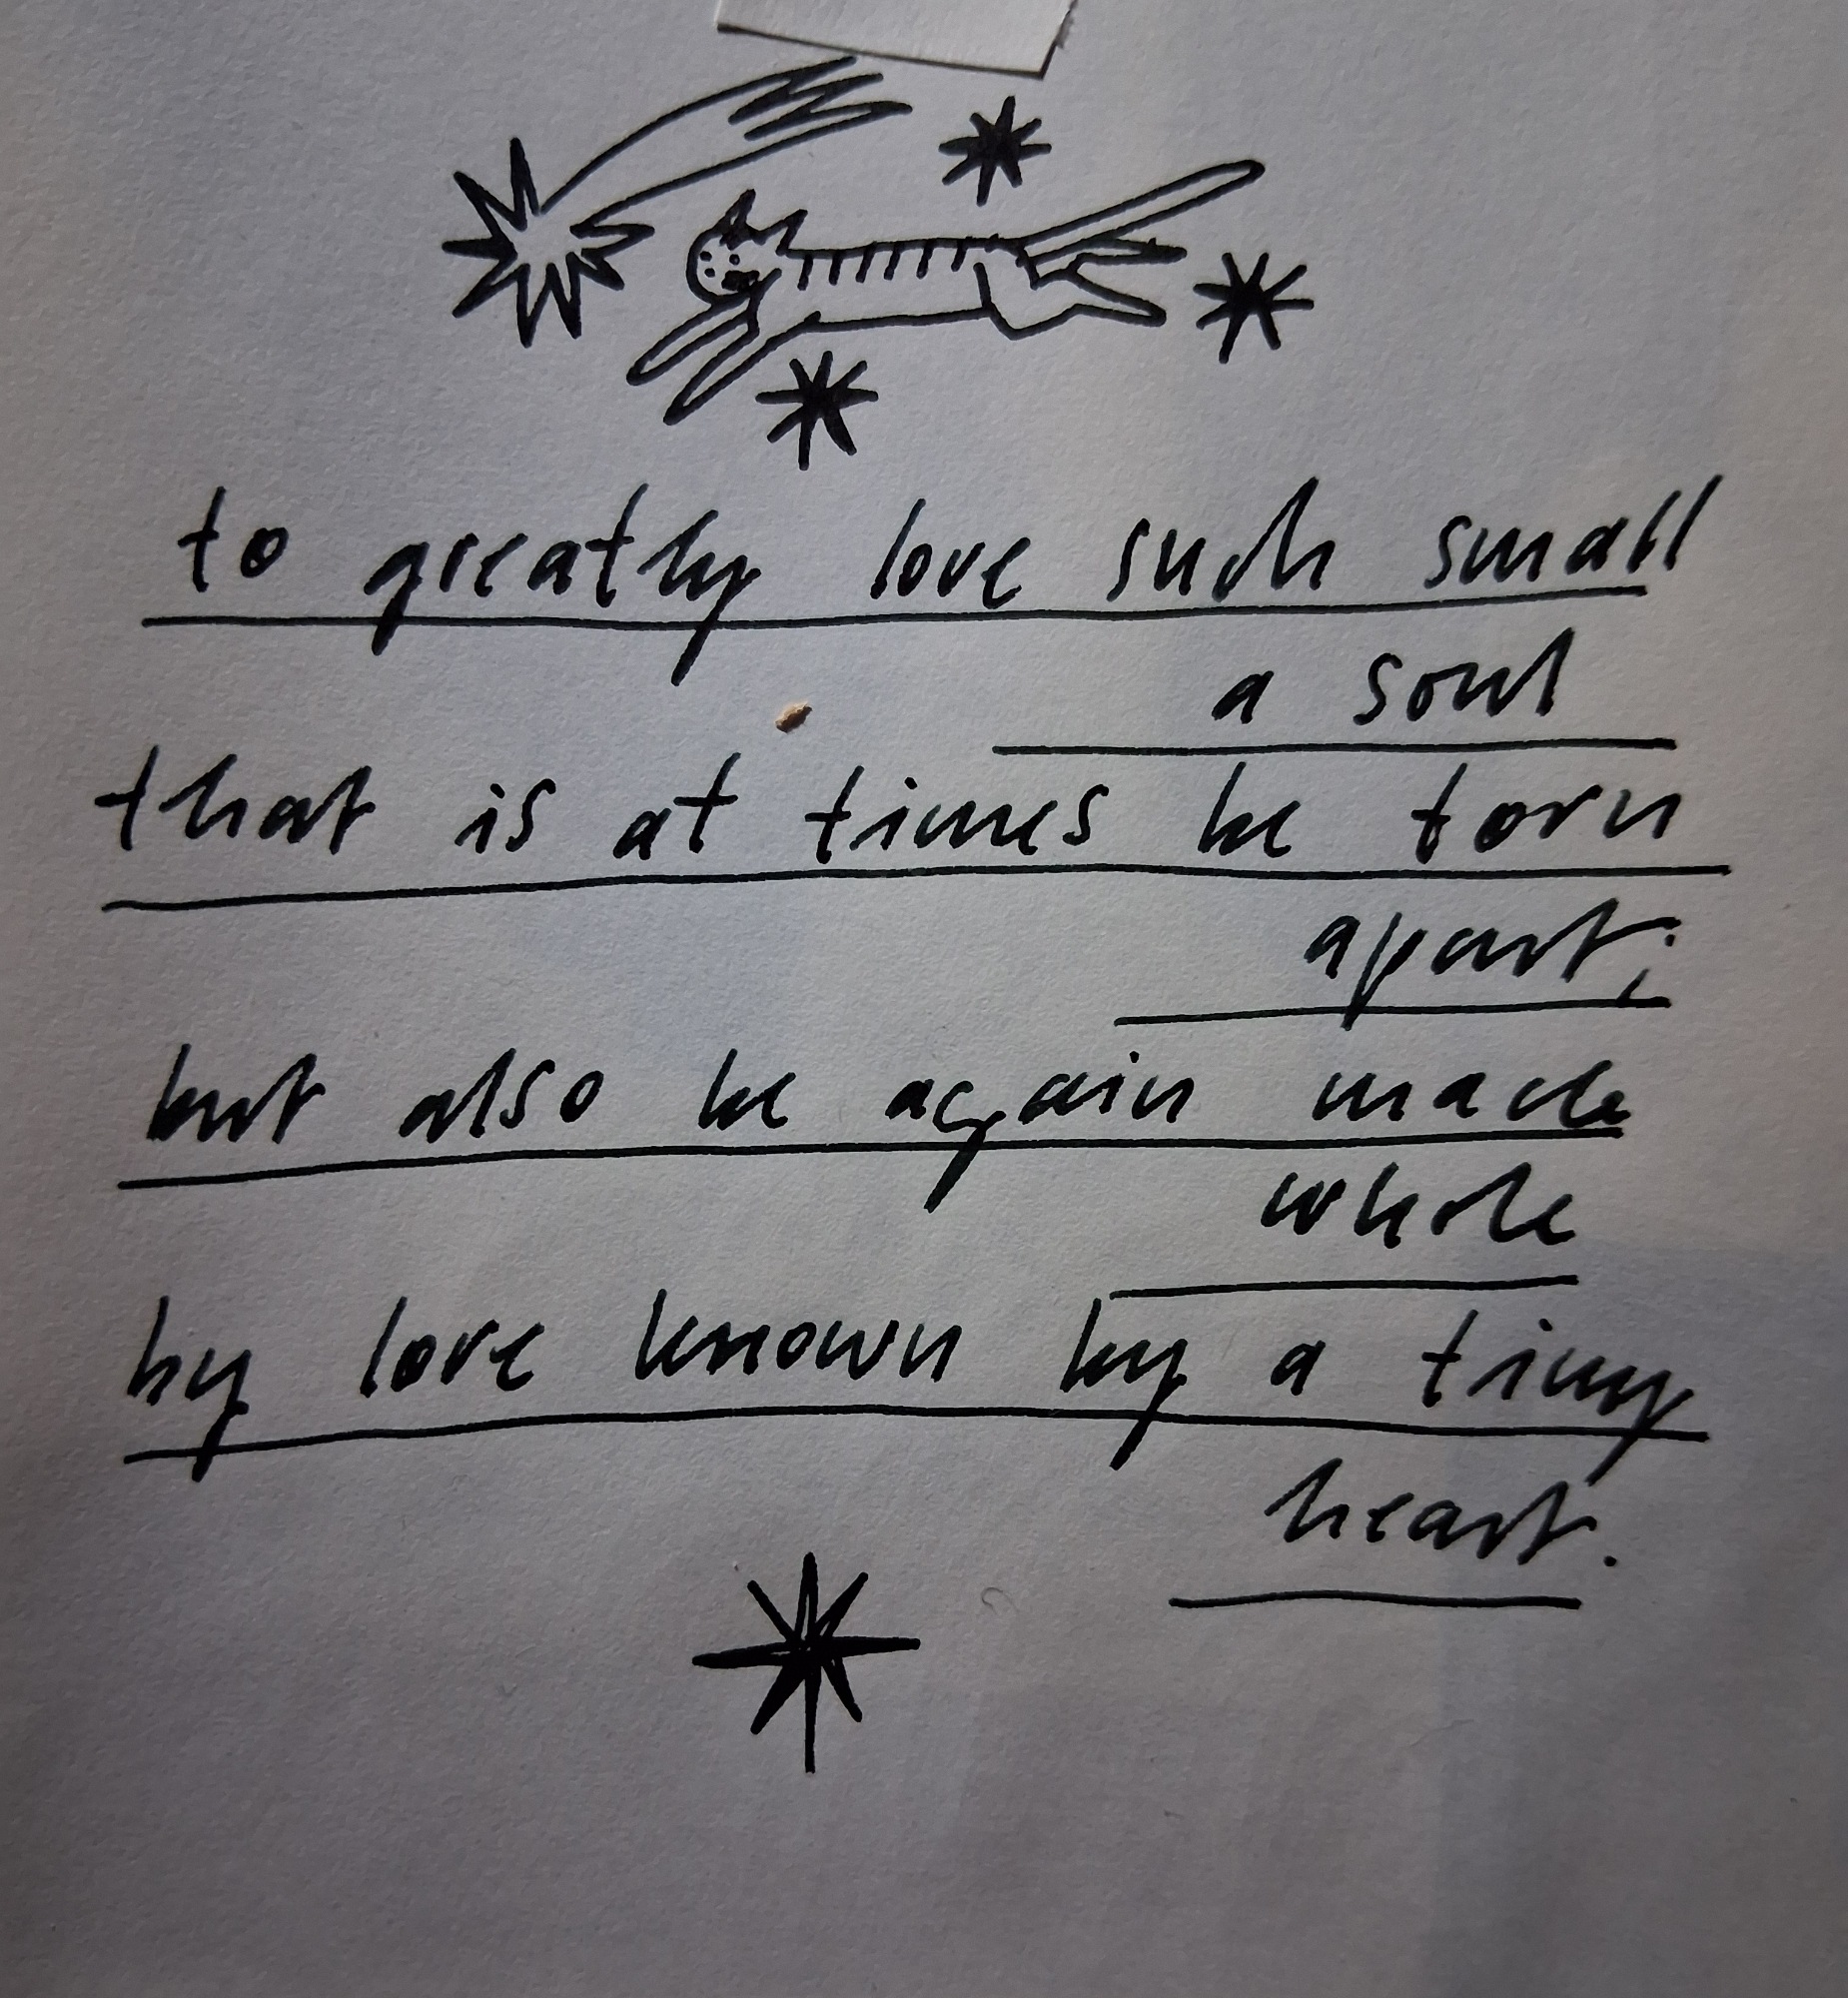 to greatly love such small
a soul
that is at times be torn
apart;
but also be again made
whole
by love known by a tiny
heart.